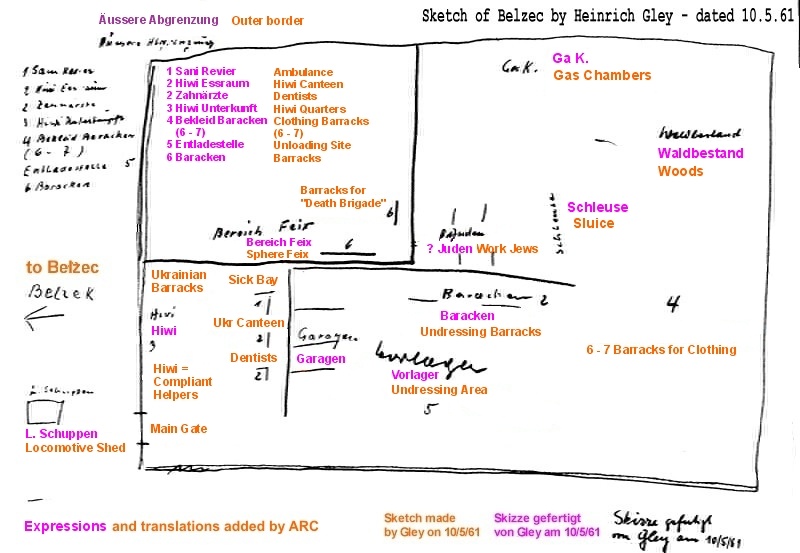 Sketch of Belzec by Heinrich Gley - dated 10.5.61
Äussere Abgrenzung Outer border
Äussere Abgrenzung
1 Sani Revier
2 Hiwi Essraum
2 Zahnärzte
3 Hiwi Unterkunft
4 Bekleid Baracken
(6 - 7)
Entladestelle 5
6 Baracken
1 Sani Revier Ambulance
2 Hiwi Essraum Hiwi Canteen
2 Zahnärzte Dentists
3 Hiwi Unterkunft Hiwi Quarters
4 Bekleid Baracken Clothing Barracks
(6 - 7) (6 - 7)
5 Entladestelle Unloading Site
6 Baracken Barracks
Ga K.
Ga K.
Gas Chambers
Waldbestand
Waldbestand
Woods
Barracks for
"Death Brigade"
6
Bereich Feix
Bereich Feix
Sphere Feix
6
Schleuse
Schleuse
Sluice
? Juden Work Jews
to Belzec
Belzek
Ukrainian
Barracks
Hiwi
Hiwi
3
Hiwi =
Compliant
Helpers
Sick Bay
1
Ukr Canteen
2
Dentists
2
Garagen
Garagen
Baracken 2
Baracken
Undressing Barracks
Vorlager
Vorlager
Undressing Area
5
4
6 - 7 Barracks for Clothing
L. Schuppen
L. Schuppen
Locomotive Shed
Main Gate
Expressions and translations added by ARC
Sketch made
by Gley on 10/5/61
Skizze gefertigt
von Gley am 10/5/61
Skizze gefertigt
von Gley am 10/5/61